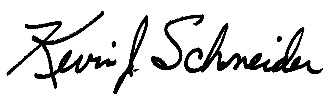 Kevin J. Schneider